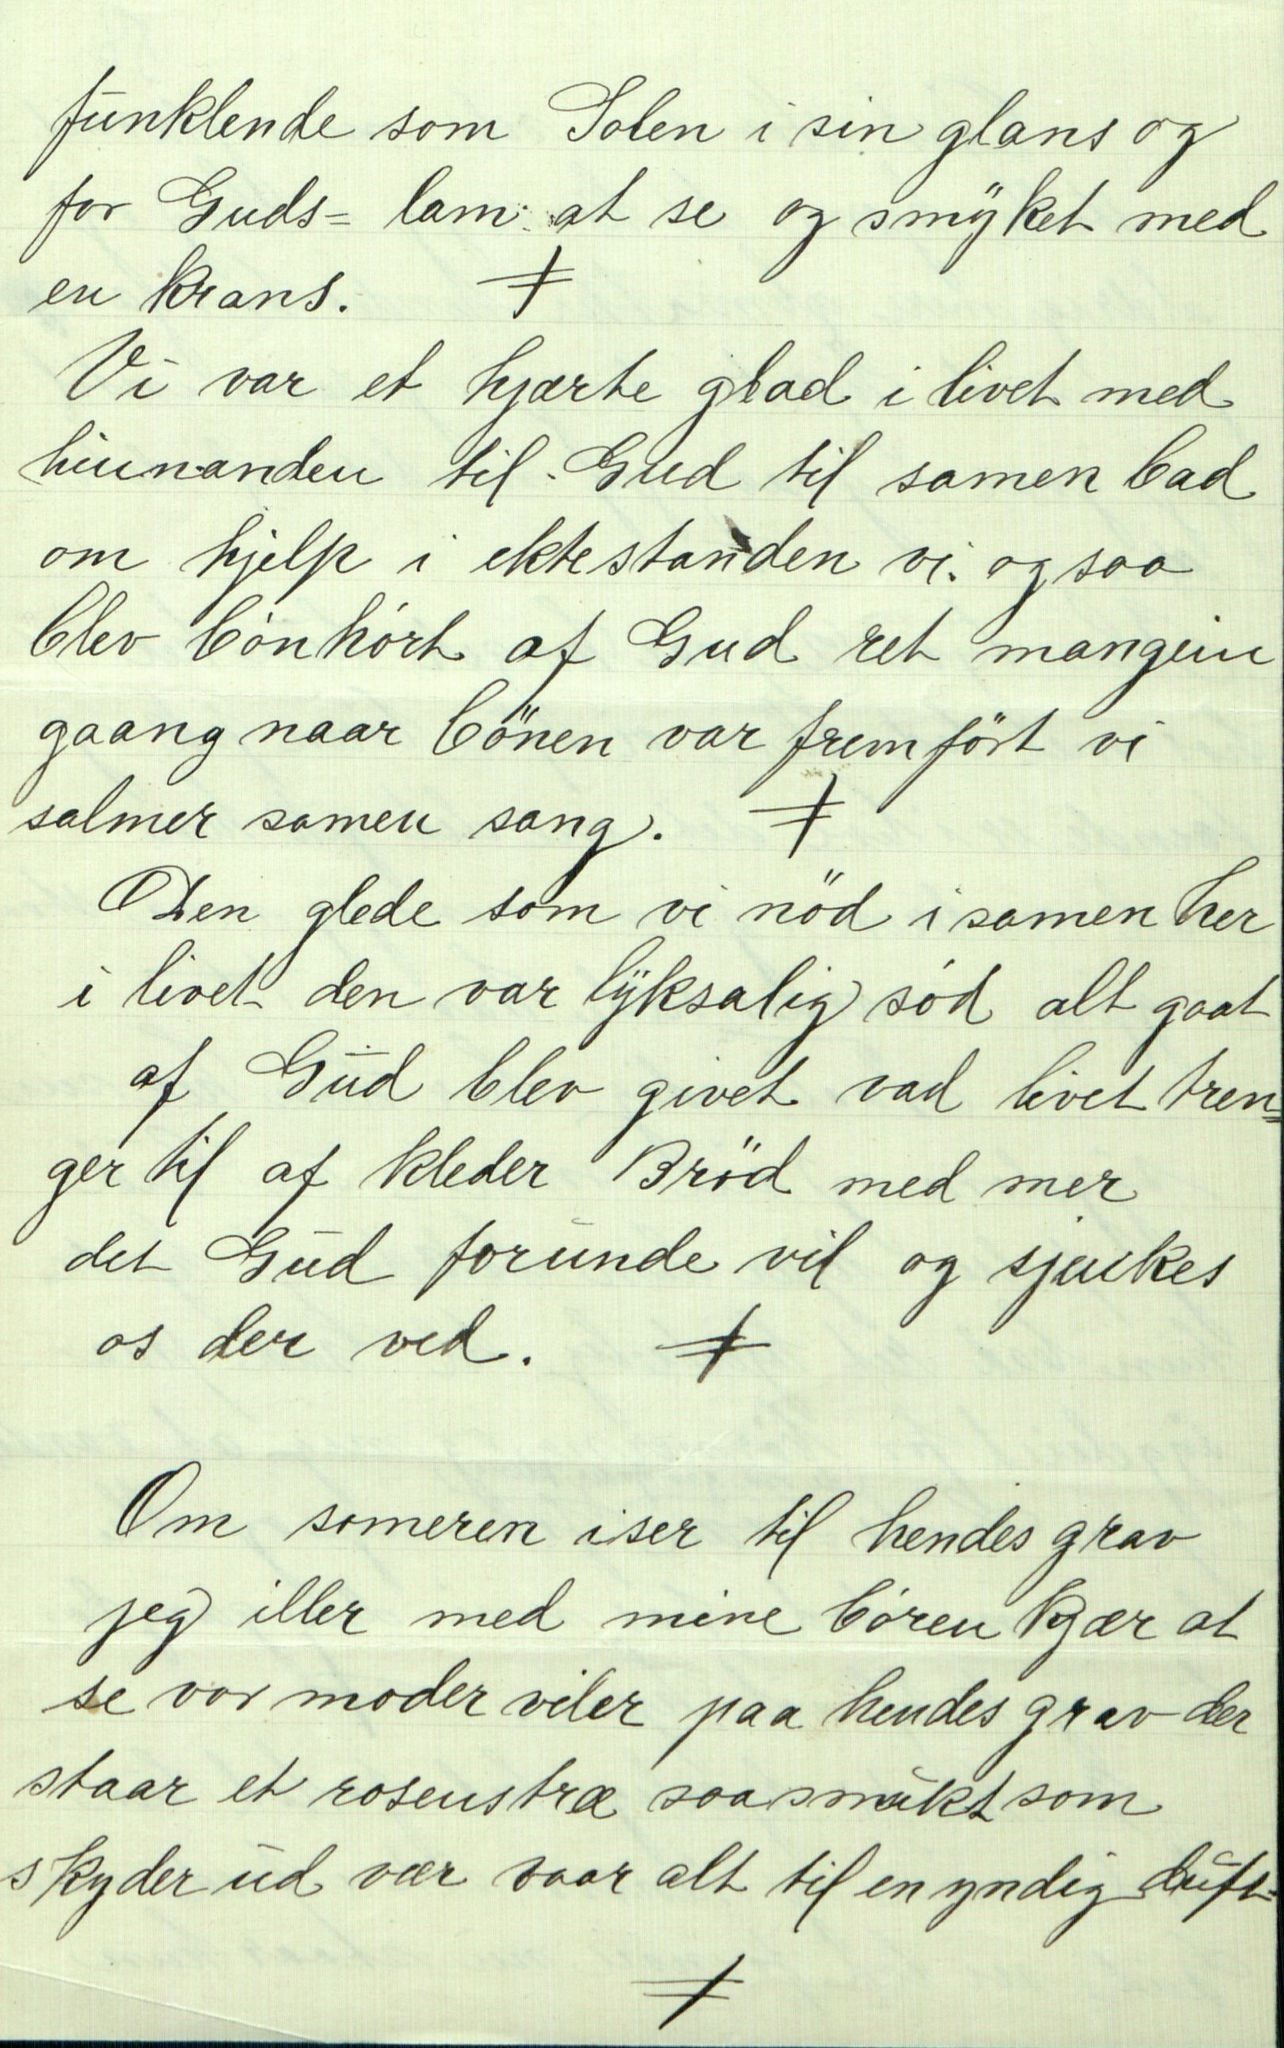 funklende som Solen i sin glans og
for Guds= lam at se og smÿket med
en krans. ≠
Vi var et hjærte glad i livet med
hinnanden til Gud til samen bad
om hjelp i ektestanden vi ogsaa
blev bönhört af Gud ret mangein
gaang naar bönen var fremfört vi
salmer samen sang. ≠
Den glede som vi nöd i samen her
i livet den var lÿksalig söd alt gaat
af Gud blev givet vad livet tren=
ger til af kleder Bröd med mer
det Gud forunde vil og sjenkes
os der ved. ≠
Om someren iser til hendes grav
jeg iller med mine bören kjær at
se vor moder viler paa hendes grav der
staar et rosenstræ saa smukt som
skyder ud vær vaar alt til en yndig duft=
≠